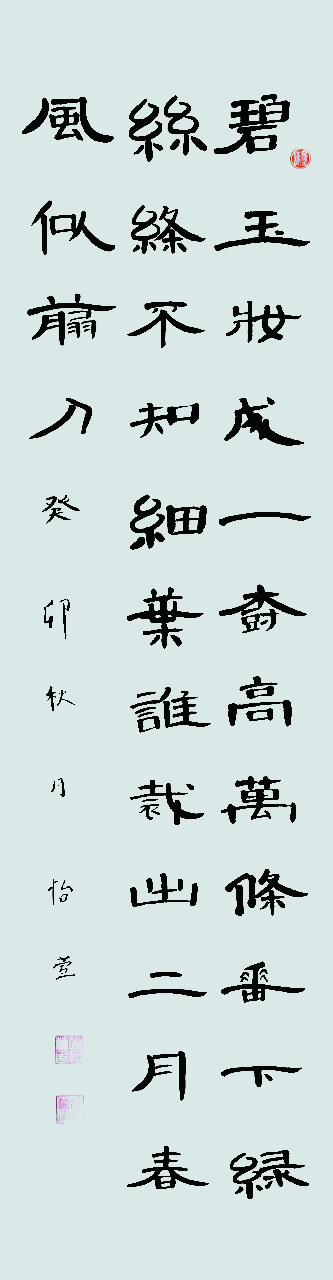 碧玉妝成一樹高萬條垂下緑
絲絛不知細葉誰裁出二月春
風似翦刀癸卯秋月怡萱